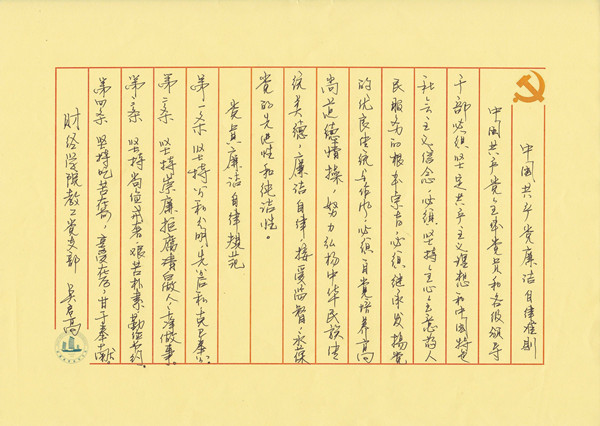 中国共产党廉洁自律准则
中国共产党全体党员和各级领导
干部必须坚定共产主义理想和中国特色
社会主义信念，必须坚持全心全意为人
民服务的根本宗旨，必须继承发扬党
的优良传统和作风，必须自觉培养高
尚道德情操，努力弘扬中华民族传
统美德，廉洁自律，接受监督，永葆
党的先进性和纯洁性。
党员廉洁自律规范
第一条 坚持公私分明，先公后私，克己奉公。
第二条 坚持崇廉拒腐，清白做人，干净做事。
第三条 坚持尚俭戒奢，艰苦朴素，勤俭节约。
第四条 坚持吃苦在前，享受在后，甘于奉献。
财经学院教工党支部 吴